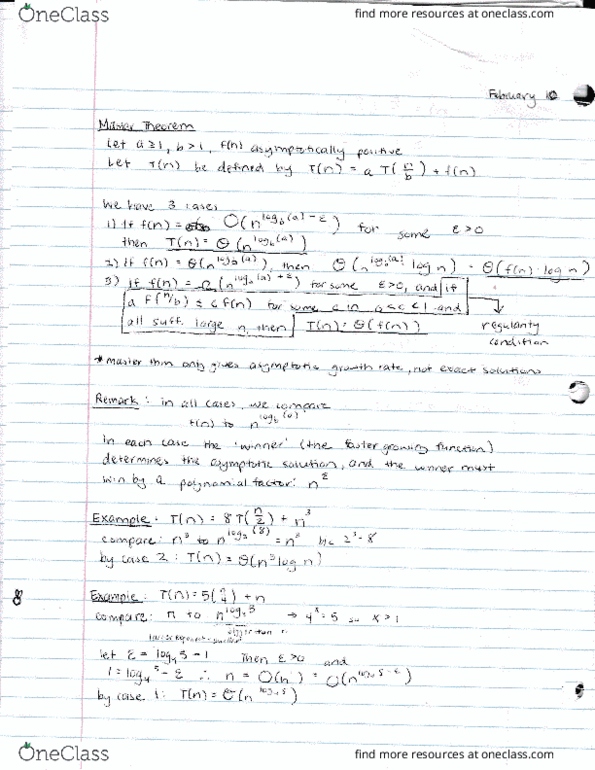 OneClass
find more resources at oneclass.com
February 10
Master Theorem
Let a ≥ 1, b > 1, f(n) asymptotically positive
Let T(n) be defined by T(n) = a T(n/b) + f(n)
We have 3 cases
1) If f(n) = O(n^(log_b(a) - ε)) for some ε > 0
then T(n) = Θ(n^(log_b(a)))
2) if f(n) = Θ(n^(log_b(a))), then Θ(n^(log_b(a)) log n) = Θ(f(n) · log n)
3) if f(n) = Ω(n^(log_b(a) + ε)) for some ε > 0, and if
a F(n/b) ≤ c f(n) for some c in 0 < c < 1 and
all suff. large n, then T(n) = Θ(f(n))
regularity
condition
* master thm only gives asymptotic growth rate, not exact solutions
Remark: in all cases, we compare
f(n) to n^(log_b(a))
In each case the 'winner' (the faster growing function)
determines the asymptotic solution, and the winner must
win by a polynomial factor: n^ε
Example: T(n) = 8T(n/2) + n^3
compare: n^3 to n^(log_2(8)) = n^3 bc 2^3 = 8
by case 2: T(n) = Θ(n^3 log n)
Example: T(n) = 5(n/4) + n
compare: n to n^(log_4 5) → 4^x = 5 so x > 1
bigger than
let ε = log_4 5 - 1 Then ε > 0 and
1 = log_4 5 - ε ∴ n = O(n) = O(n^(log_4 5 - ε))
by case 1: T(n) = Θ(n^(log_4 5))
OneClass
find more resources at oneclass.com